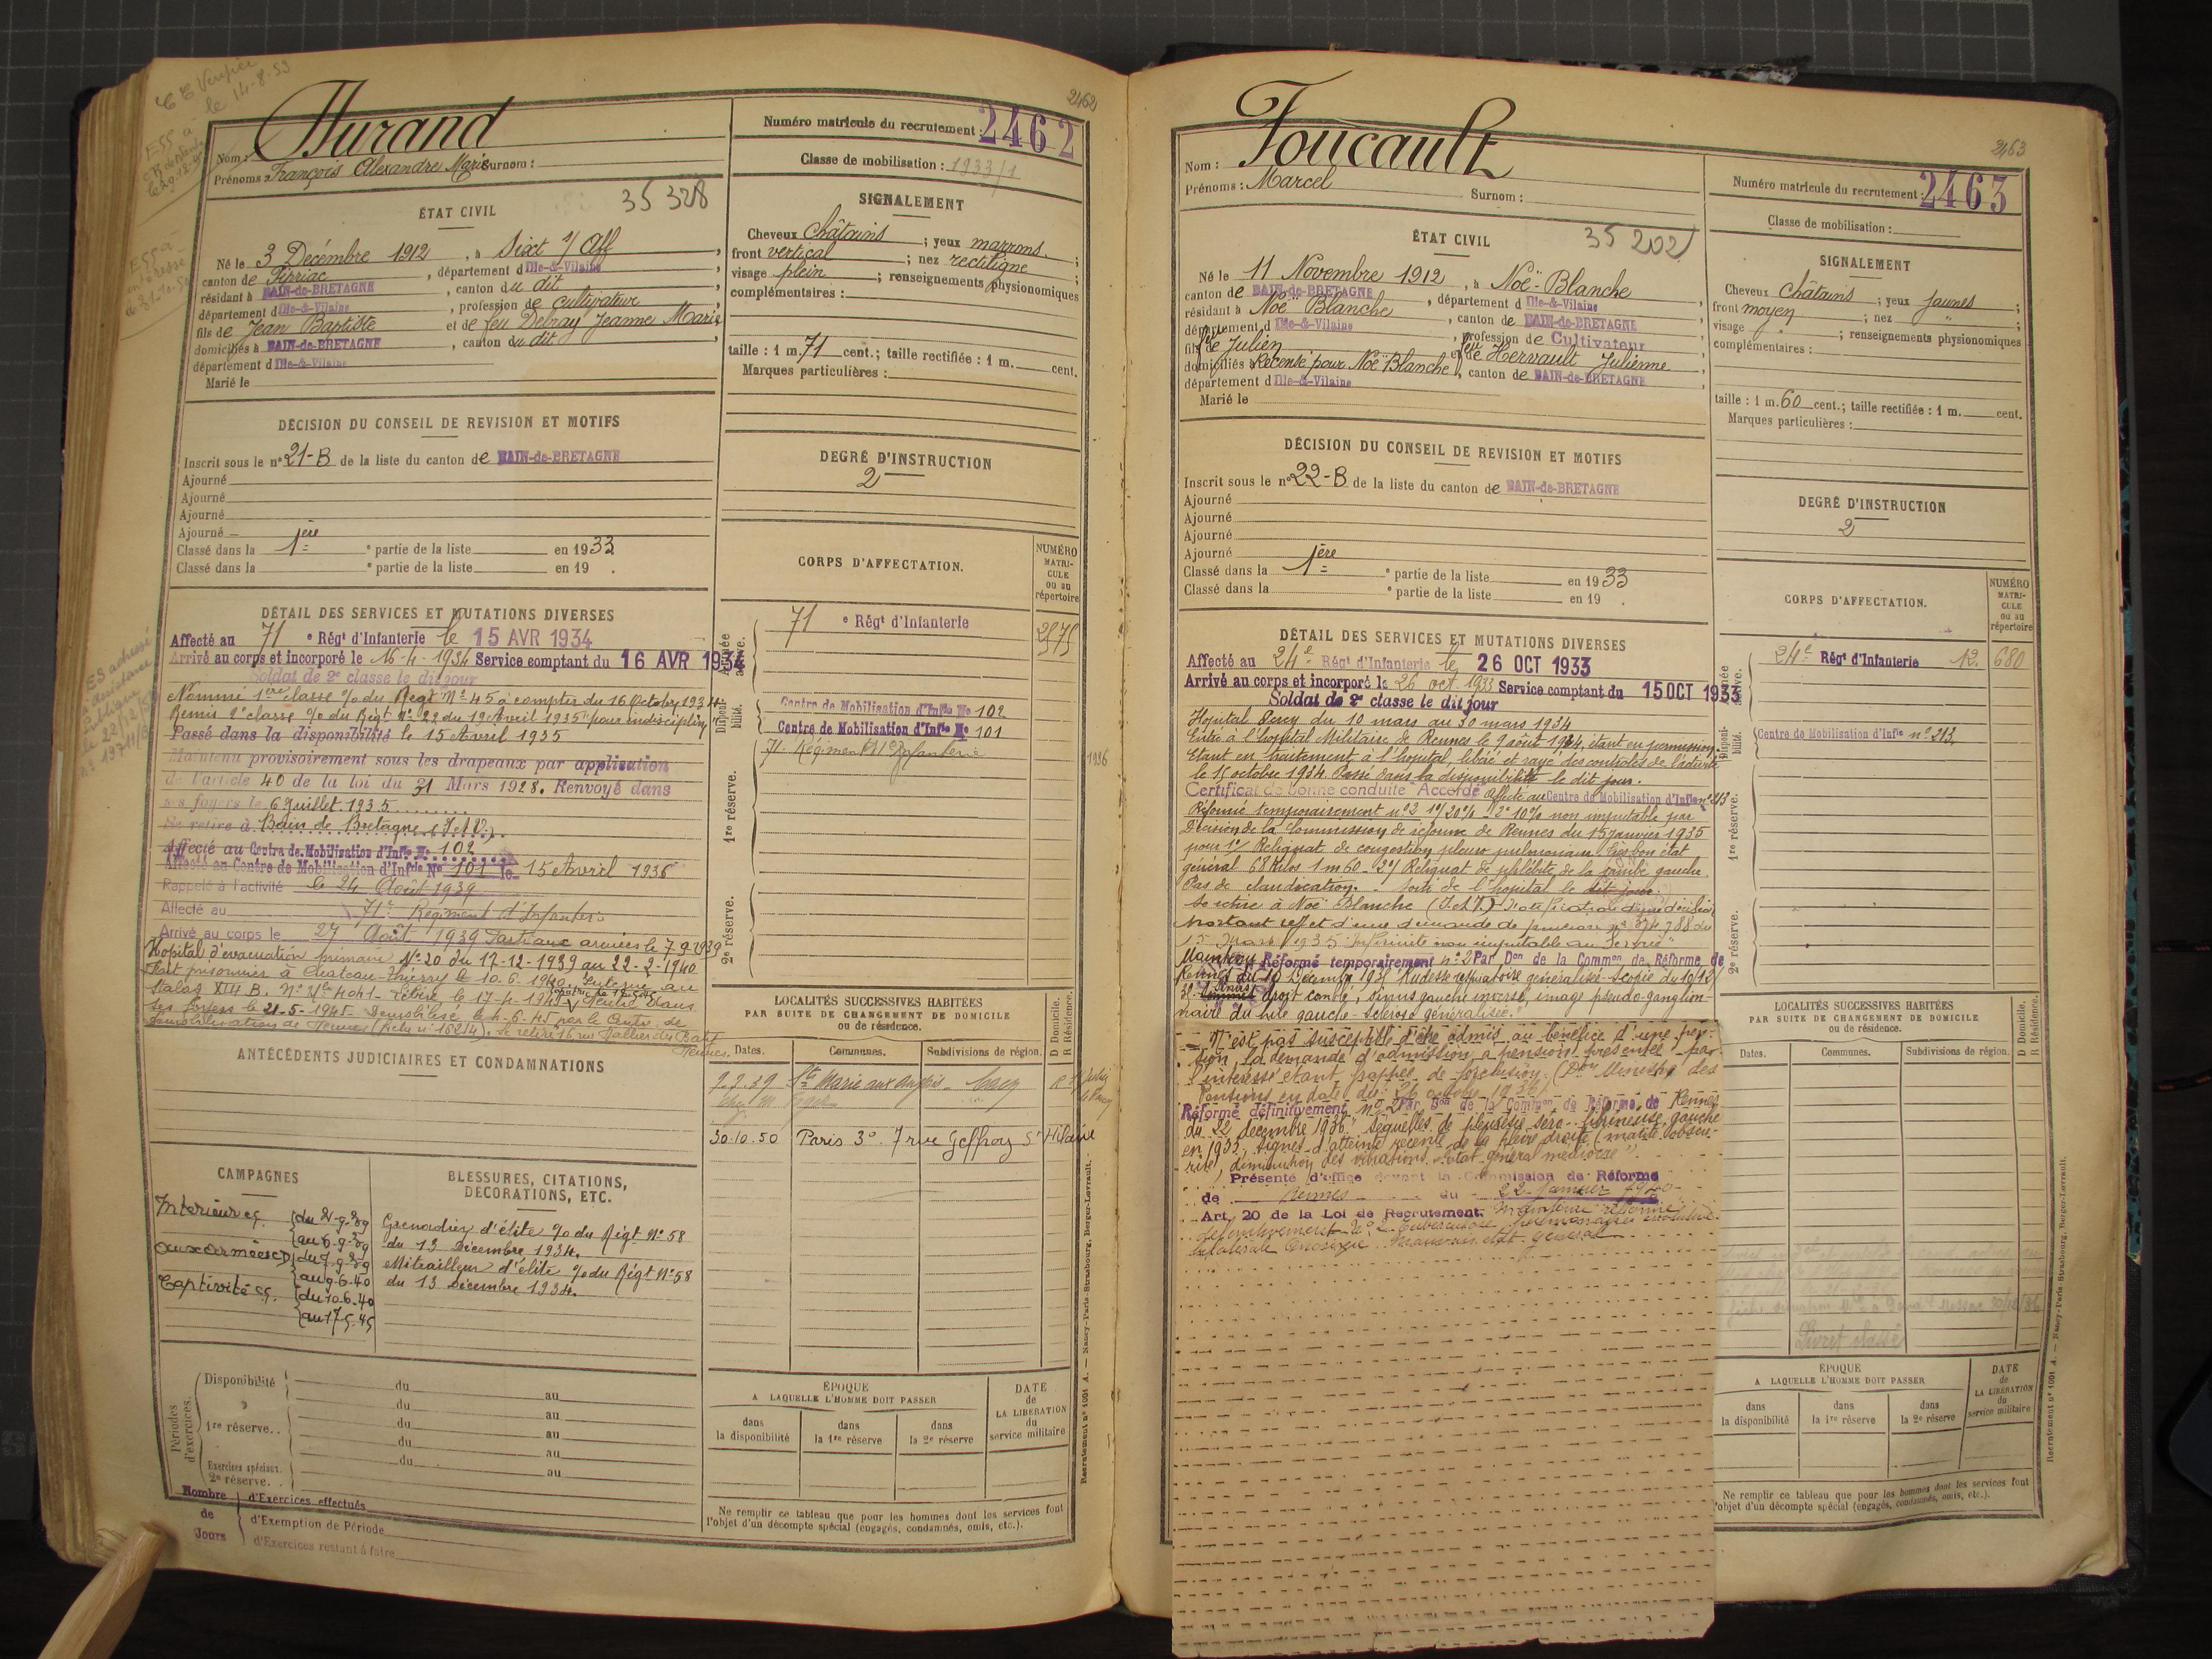 CE Vérifiée
le 14-8-53
2462
Nom : Durand
Prénoms : François Alexandre Marie Surnom :
Numéro matricule du recrutement : 2462
Classe de mobilisation : 1933/1
ÉTAT CIVIL
35328
Né le 3 Décembre 1912, à Sixt s/ Aff,
canton de Pipriac, département d'Ille-&-Vilaine
résidant à BAIN-de-BRETAGNE, canton du dit,
département d'Ille-&-Vilaine, profession de cultivateur
fils de Jean Baptiste et de feu Delray Jeanne Marie
domiciliés à BAIN-de-BRETAGNE, canton du dit,
département d'Ille-&-Vilaine
Marié le
SIGNALEMENT
Cheveux châtains ; yeux marrons ;
front vertical ; nez rectiligne ;
visage plein ; renseignements physionomiques
complémentaires :
taille : 1 m. 71 cent. ; taille rectifiée : 1 m. cent.
Marques particulières :
DÉCISION DU CONSEIL DE REVISION ET MOTIFS
Inscrit sous le n° 21-B de la liste du canton de BAIN-de-BRETAGNE
Ajourné
Ajourné
Ajourné
Ajourné
Classé dans la 1ère e partie de la liste en 1933
Classé dans la e partie de la liste en 19 .
DEGRÉ D'INSTRUCTION
2
CORPS D'AFFECTATION.
NUMÉRO MATRICULE ou au répertoire
Armée active.
71 e Régt d'Infanterie 2575
Disponibilité.
Centre de Mobilisation d'Infie No 102
Centre de Mobilisation d'Infie No 101
71e Régiment d'Infanterie
1936
1re réserve.
2e réserve.
DÉTAIL DES SERVICES ET MUTATIONS DIVERSES
Affecté au 71 e Régt d'Infanterie le 15 AVR 1934
Arrivé au corps et incorporé le 16-4-1934 Service comptant du 16 AVR 1934
Soldat de 2e classe le dit jour
Nommé 1ère classe o/o du Régt N° 45 à compter du 16 Octobre 1934
Remis 2e classe o/o du Régt N° 22 du 12 Avril 1935 pour indiscipline
Passé dans la disponibilité le 15 Avril 1935
Maintenu provisoirement sous les drapeaux par application
de l'article 40 de la loi du 31 Mars 1928. Renvoyé dans
ses foyers le 6 Juillet 1935
Se retire à Bain de Bretagne (I et V)
Affecté au Centre de Mobilisation d'Infie No 102
Affecté au Centre de Mobilisation d'Infie No 101 le 15 Avril 1936
Rappelé à l'activité le 24 Août 1939
Affecté au 71e Régiment d'Infanterie
Arrivé au corps le 27 Août 1939 Parti aux armées le 7-9-1939
Hopital d'évacuation primaire N° 20 du 17-12-1939 au 22-2-1940
Fait prisonnier à Chateau-Thierry le 10.6.1940. Interné au
Stalag XIII B.
ses foyers le 21-5-1945 Démobilisé le 4-6-45 par le Centre de
démobilisation de Rennes (fiche n° 16214). Se retire 16 rue
Rennes
ANTÉCÉDENTS JUDICIAIRES ET CONDAMNATIONS
LOCALITÉS SUCCESSIVES HABITÉES
PAR SUITE DE CHANGEMENT DE DOMICILE
ou de résidence.
D Domicile. R Résidence.
Dates. Communes. Subdivisions de région.
9.9.39 Ste Marie aux Anglais Caen R
30.10.50 Paris 3e 7 rue Geffroy St Hilaire
CAMPAGNES
Intérieur CS. du 24-8-39
au 6-9-39
aux armées CD du 7-9-39
au 9-6-40
Captivité CS. du 10-6-40
au 17-5-45
BLESSURES, CITATIONS,
DÉCORATIONS, ETC.
Grenadier d'élite o/o du Régt N° 58
du 13 Décembre 1934.
Mitrailleur d'élite o/o du Régt N° 58
du 13 Décembre 1934.
Périodes d'exercices.
Disponibilité du au
du au
1re réserve. . du au
du au
Exercices spéciaux. du au
2e réserve.
Nombre de Jours
d'Exercices effectués
d'Exemption de Période
d'Exercices restant à faire
ÉPOQUE
A LAQUELLE L'HOMME DOIT PASSER
dans la disponibilité
dans la 1re réserve
dans la 2e réserve
DATE de LA LIBÉRATION du service militaire
Ne remplir ce tableau que pour les hommes dont les services font
l'objet d'un décompte spécial (engagés, condamnés, omis, etc.).
Recrutement n° 1001 A. — Nancy-Paris-Strasbourg, Berger-Levrault.
2463
Nom : Foucault
Prénoms : Marcel Surnom :
Numéro matricule du recrutement : 2463
Classe de mobilisation :
ÉTAT CIVIL
35202
Né le 11 Novembre 1912, à Noë-Blanche
canton de BAIN-de-BRETAGNE, département d'Ille-&-Vilaine
résidant à Noë Blanche, canton de BAIN-de-BRETAGNE
département d'Ille-&-Vilaine, profession de Cultivateur
fils de Julien et de feu Hervault Julienne
domiciliés Recensé pour Noë Blanche, canton de BAIN-de-BRETAGNE
département d'Ille-&-Vilaine
Marié le
SIGNALEMENT
Cheveux châtains ; yeux jaunes ;
front moyen ; nez " ;
visage " ; renseignements physionomiques
complémentaires :
taille : 1 m. 60 cent. ; taille rectifiée : 1 m. cent.
Marques particulières :
DÉCISION DU CONSEIL DE REVISION ET MOTIFS
Inscrit sous le n° 22-B de la liste du canton de BAIN-de-BRETAGNE
Ajourné
Ajourné
Ajourné
Ajourné
Classé dans la 1ère e partie de la liste en 1933
Classé dans la e partie de la liste en 19 .
DEGRÉ D'INSTRUCTION
2
CORPS D'AFFECTATION.
NUMÉRO MATRICULE ou au répertoire
Armée active.
24e Régt d'Infanterie 12. 680
Disponibilité.
Centre de Mobilisation d'Infie n° 213
1re réserve.
2e réserve.
DÉTAIL DES SERVICES ET MUTATIONS DIVERSES
Affecté au 24e Régt d'Infanterie le 26 OCT 1933
Arrivé au corps et incorporé le 26 oct. 1933 Service comptant du 15 OCT 1933
Soldat de 2e classe le dit jour
Hopital Percy du 10 mars au 30 mars 1934
Entré à l'hopital Militaire de Rennes le 9 août 1934, étant en permission.
Etant en traitement à l'hopital, libéré et rayé des controles de l'activité
le 15 octobre 1934. Passé dans la disponibilité le dit jour.
Certificat de bonne conduite Accordé Affecté au Centre de Mobilisation d'Infie n° 213
Réformé temporairement n° 2 1°/ 20% - 2° 10% non imputable par
Décision de la Commission de réforme de Rennes du 15 janvier 1935
pour 1°/ Reliquat de congestion pleuro pulmonaire très bon état
général 68 kilos 1m60 - 2°/ Reliquat de phlébite de la jambe gauche.
Pas de claudication. Sorti de l'hopital le dit jour.
Se retire à Noë Blanche (I. et V.) Notification d'une décision
portant rejet d'une demande de pension n° 374.788 du
15 Mars 1935 "Infirmité non imputable au service"
Maintenu Réformé temporairement n° 2 Par Don de la Common de Réforme de
Rennes du 10 Décembre 1935 Rudesse respiratoire généralisée - Scopie du
droit comblé, sinus gauche inverse, image pseudo-ganglion-
naire du hile gauche - Sclérose généralisée."
N'est pas susceptible d'être admis au bénéfice d'une pen-
sion, la demande d'admission à pension présentée par
l'intéressé étant frappée de forclusion. (Don Ministre des
Pensions en date du 26 octobre 1936)
Réformé définitivement n° 2 Par Don de la Common de Réforme de Rennes
du 22 décembre 1936 "Séquelles de pleurésie séro-fibrineuse gauche
en 1933, signes d'atteinte récente de la plèvre droite (matité, obscu-
rité, diminution des vibrations. Etat général médiocre".
Présenté d'office devant la Commission de Réforme
de Rennes du 22 janvier 1940
Art. 20 de la Loi de Recrutement. Maintenu réformé
définitivement n° 2 Tuberculose pulmonaire évolutive
bilatérale. Mauvais état général
LOCALITÉS SUCCESSIVES HABITÉES
PAR SUITE DE CHANGEMENT DE DOMICILE
ou de résidence.
D Domicile. R Résidence.
Dates. Communes. Subdivisions de région.
Livret classé
ÉPOQUE
A LAQUELLE L'HOMME DOIT PASSER
dans la disponibilité
dans la 1re réserve
dans la 2e réserve
DATE de LA LIBÉRATION du service militaire
Ne remplir ce tableau que pour les hommes dont les services font
l'objet d'un décompte spécial (engagés, condamnés, omis, etc.).
Recrutement n° 1001 A. — Nancy-Paris-Strasbourg, Berger-Levrault.